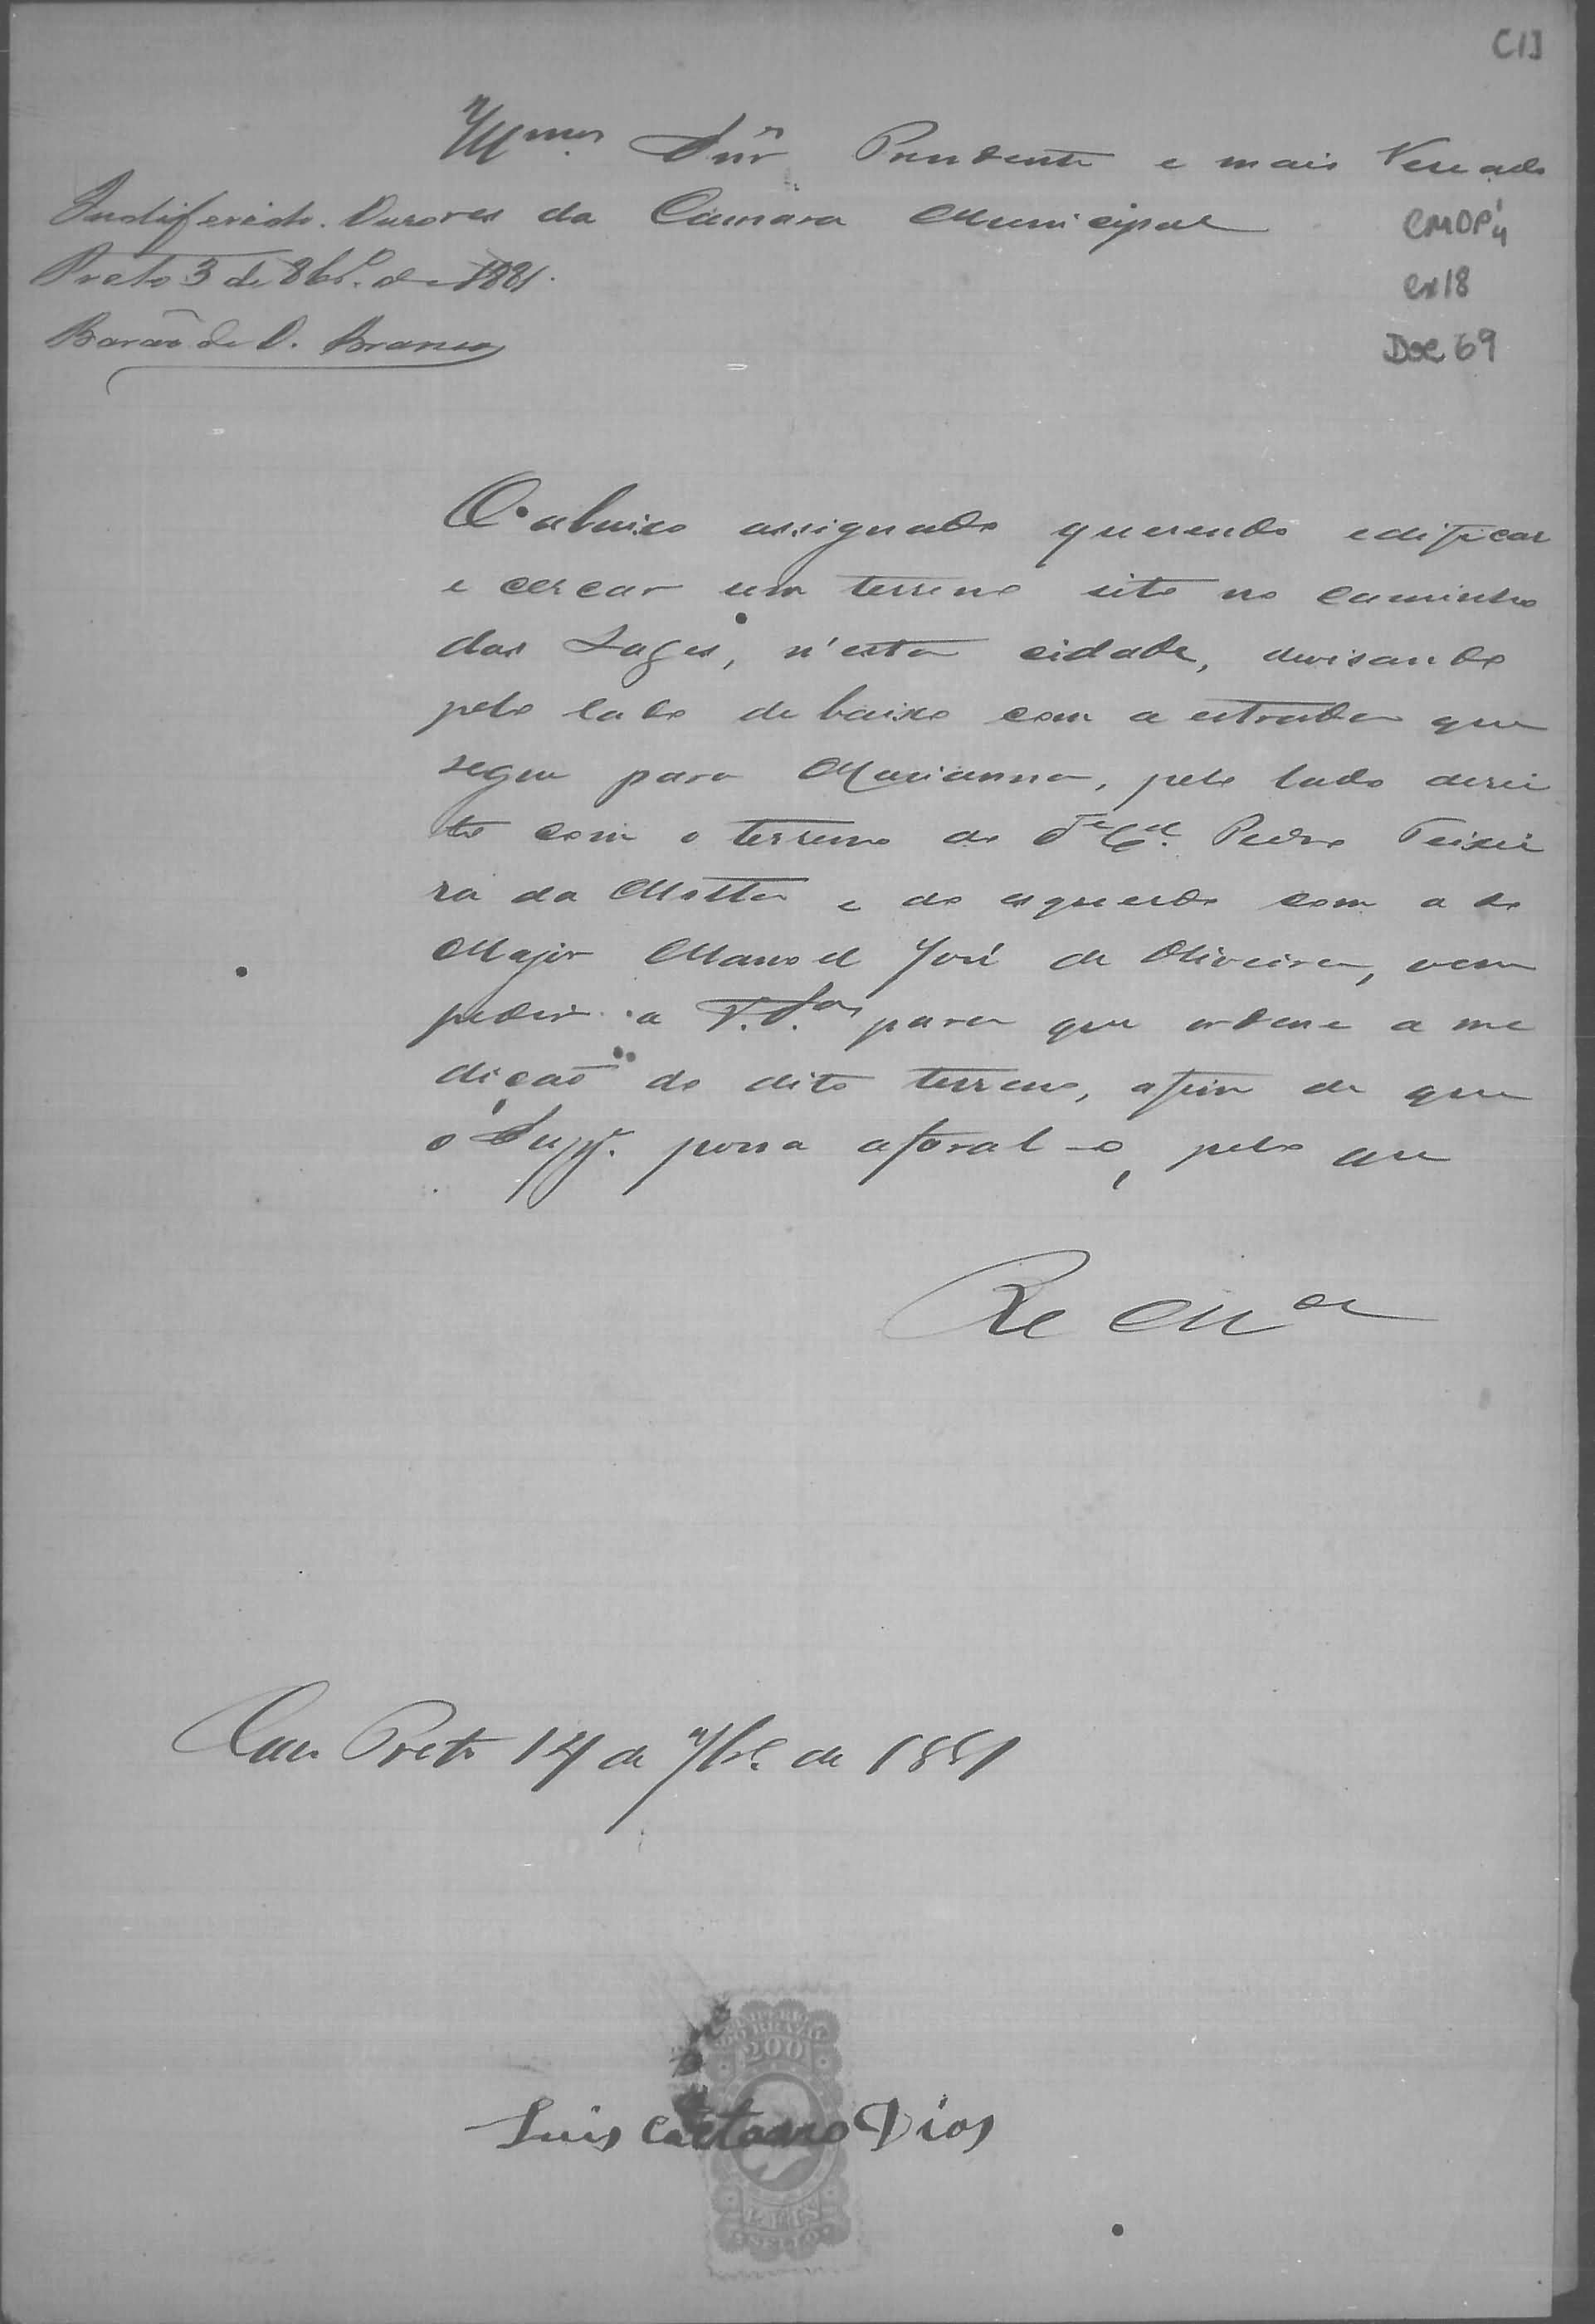 [1]
Illmos Snr Presidente e mais Veread
ores da Camara Municipal
Indiferido. Ouro
Preto 3 de 8br.o de 1881.
Barão de C. Branco
CMOP 4
Cx 18
Doc 69
O abaixo assignado querendo edificar
e cercar um terreno sito no caminho
das Lages, n'esta cidade, devisando
pelo lado de baixo com a estrada que
segue para Marianna, pelo lado direi
to com o terreno do Te Cel. Pedro Teixei
ra da Motta e do esquerdo com a do
Major Manoel José de Oliveira, vem
pedir a V. Sas para que ordene a me
dição do dito terreno, afim de que
o Suppe. possa aforal-o, pelo que
Re Mce
Ouro Preto 14 de 7bro. de 1881
IMPERIO
DO BRAZIL
200
Luis Caetano Dias
REIS
SELLO